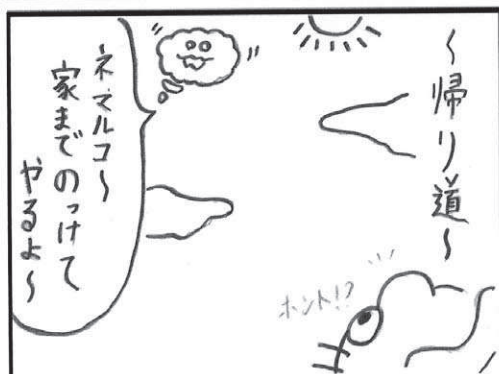 ～帰り道～
ホント!?
ネマルコ～
家までのっけて
やるよ～